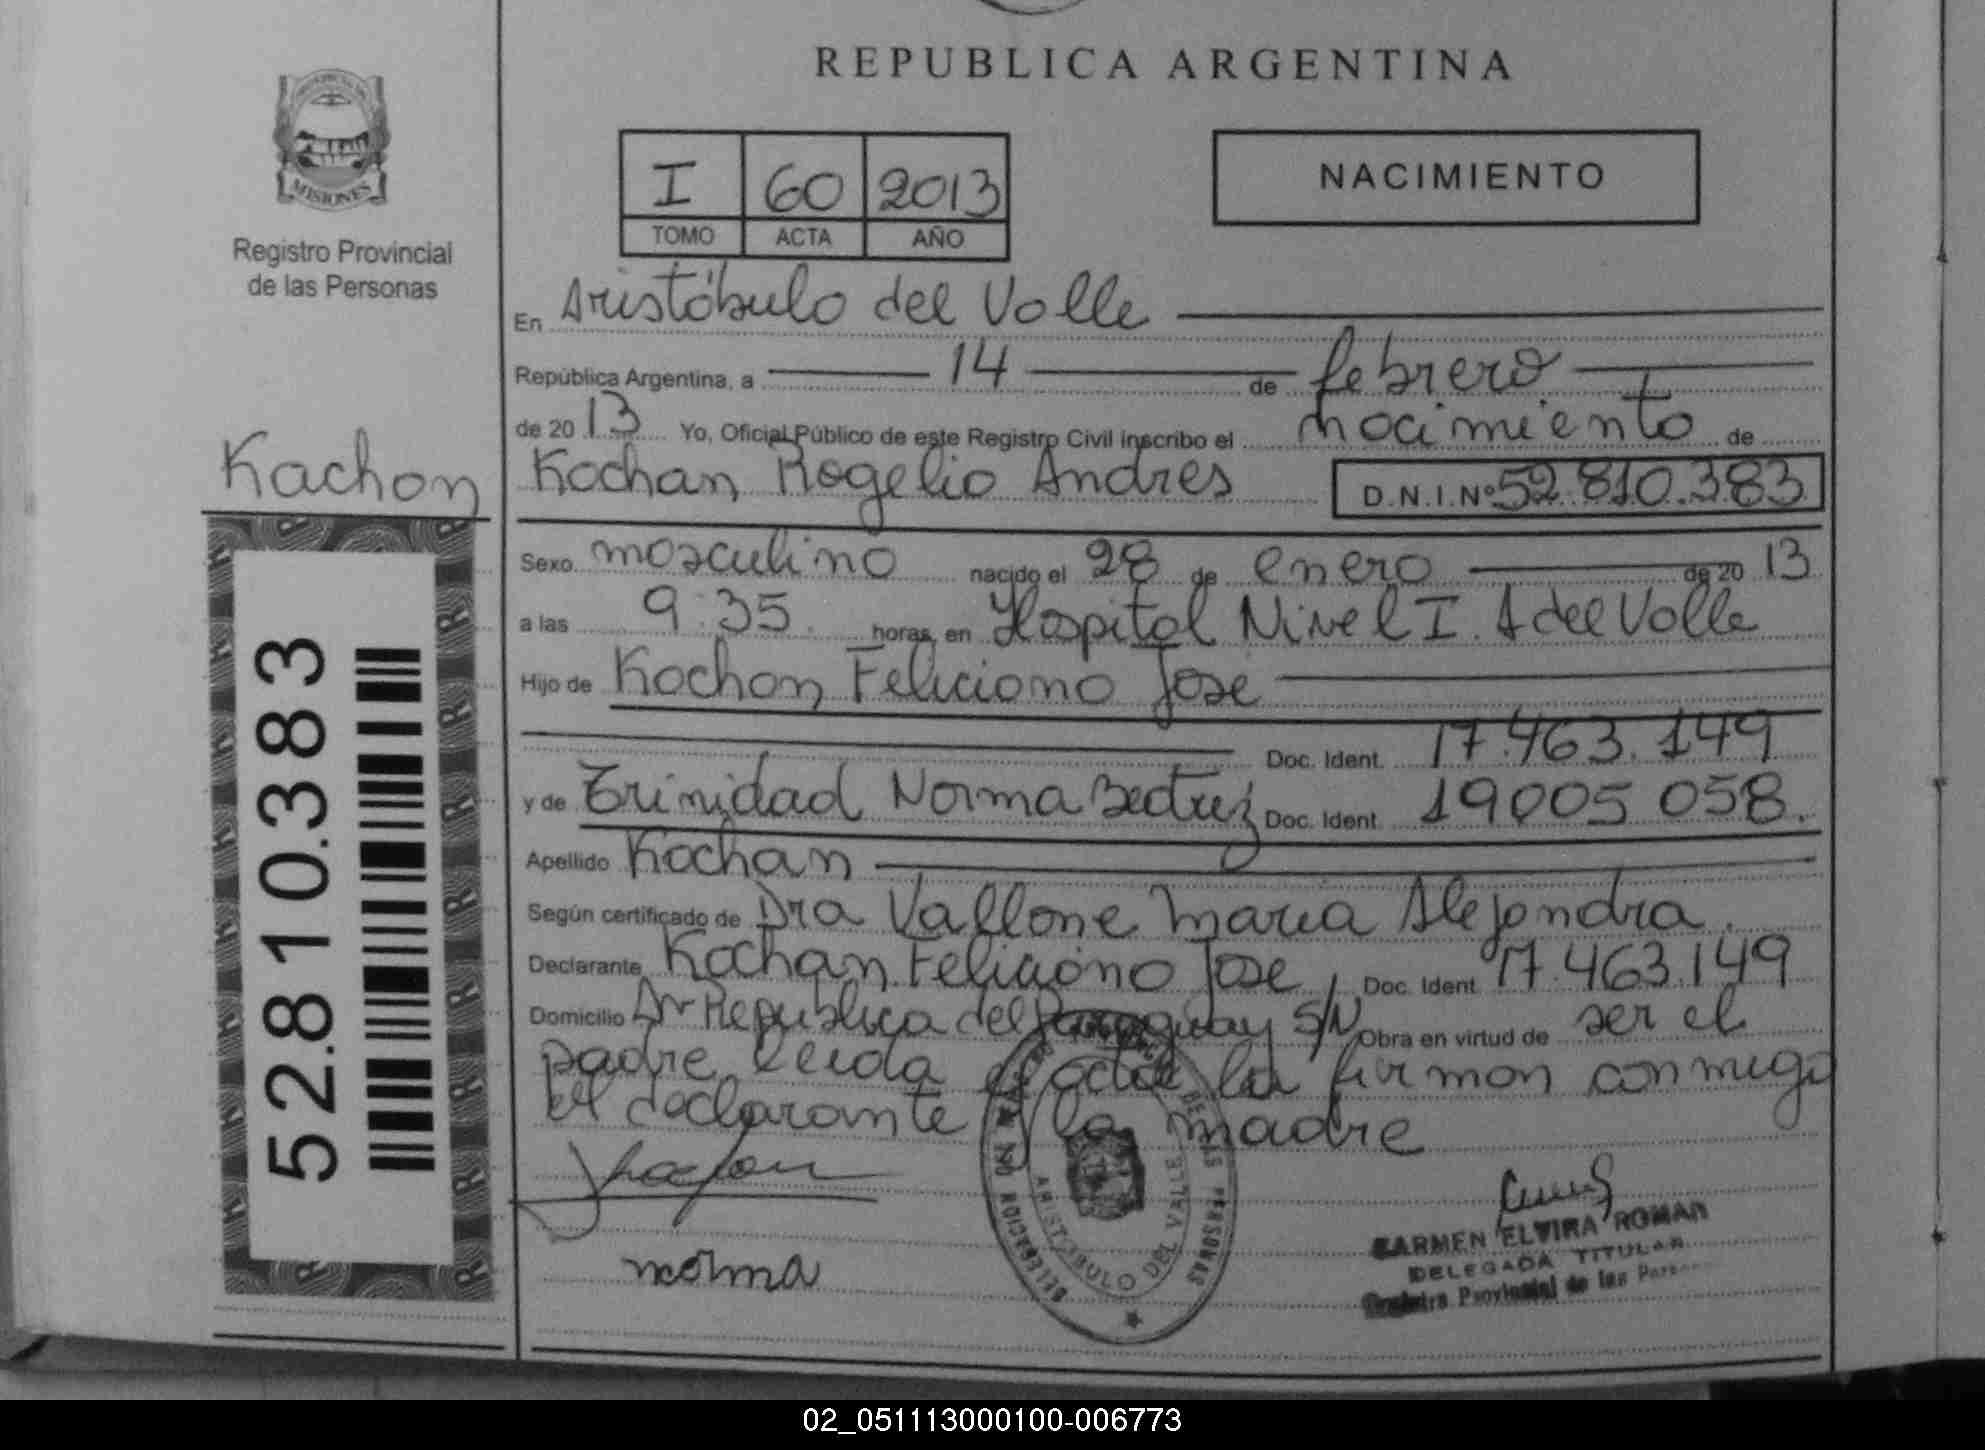 REPUBLICA ARGENTINA
MISIONES
Registro Provincial
de las Personas
I 60 2013
TOMO ACTA AÑO
NACIMIENTO
En Aristóbulo del Valle
República Argentina, a 14 de febrero
de 2013 Yo, Oficial Público de este Registro Civil inscribo el nacimiento de
Kachan
Kochan Rogelio Andres D.N.I.Nº 52.810.383
Sexo masculino nacido el 28 de enero de 2013
a las 9:35 horas, en Hospital Nivel I. A del Valle
Hijo de Kochan Feliciano Jose
Doc. Ident. 17.463.149
y de Trinidad Norma Beatriz Doc. Ident. 19005058.
Apellido Kochan
Según certificado de Dra Vallone Maria Alejandra.
Declarante Kochan Feliciano Jose Doc. Ident. 17.463.149
Domicilio Av Republica del Paraguay S/N Obra en virtud de ser el
padre leida el acta la firman conmigo
el declarante y la madre
norma
52.810.383
DELEGACION ARISTOBULO DEL VALLE
DE LAS PERSONAS
CARMEN ELVIRA ROMAN
DELEGADA TITULAR
Registro Provincial de las
02_051113000100-006773